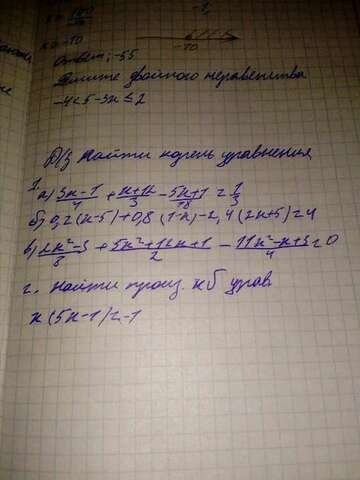 -1,
x = -10
-10
Ответ: -55
Решите двойного неравенства
-4<5-3x≤2
Д/з Найти корень уравнения
1. а) 3x-1/4 + x+12/3 - 5x+1/18 = 1/3
б) 0,2(x-5)+0,8(1-x)-2,4(2x+5)=4
в) 2x²-3/8 + 5x²+12x+1/2 - 11x²-x+3/4 = 0
г. Найти произ. кб урав.
x(5x-1)=-1